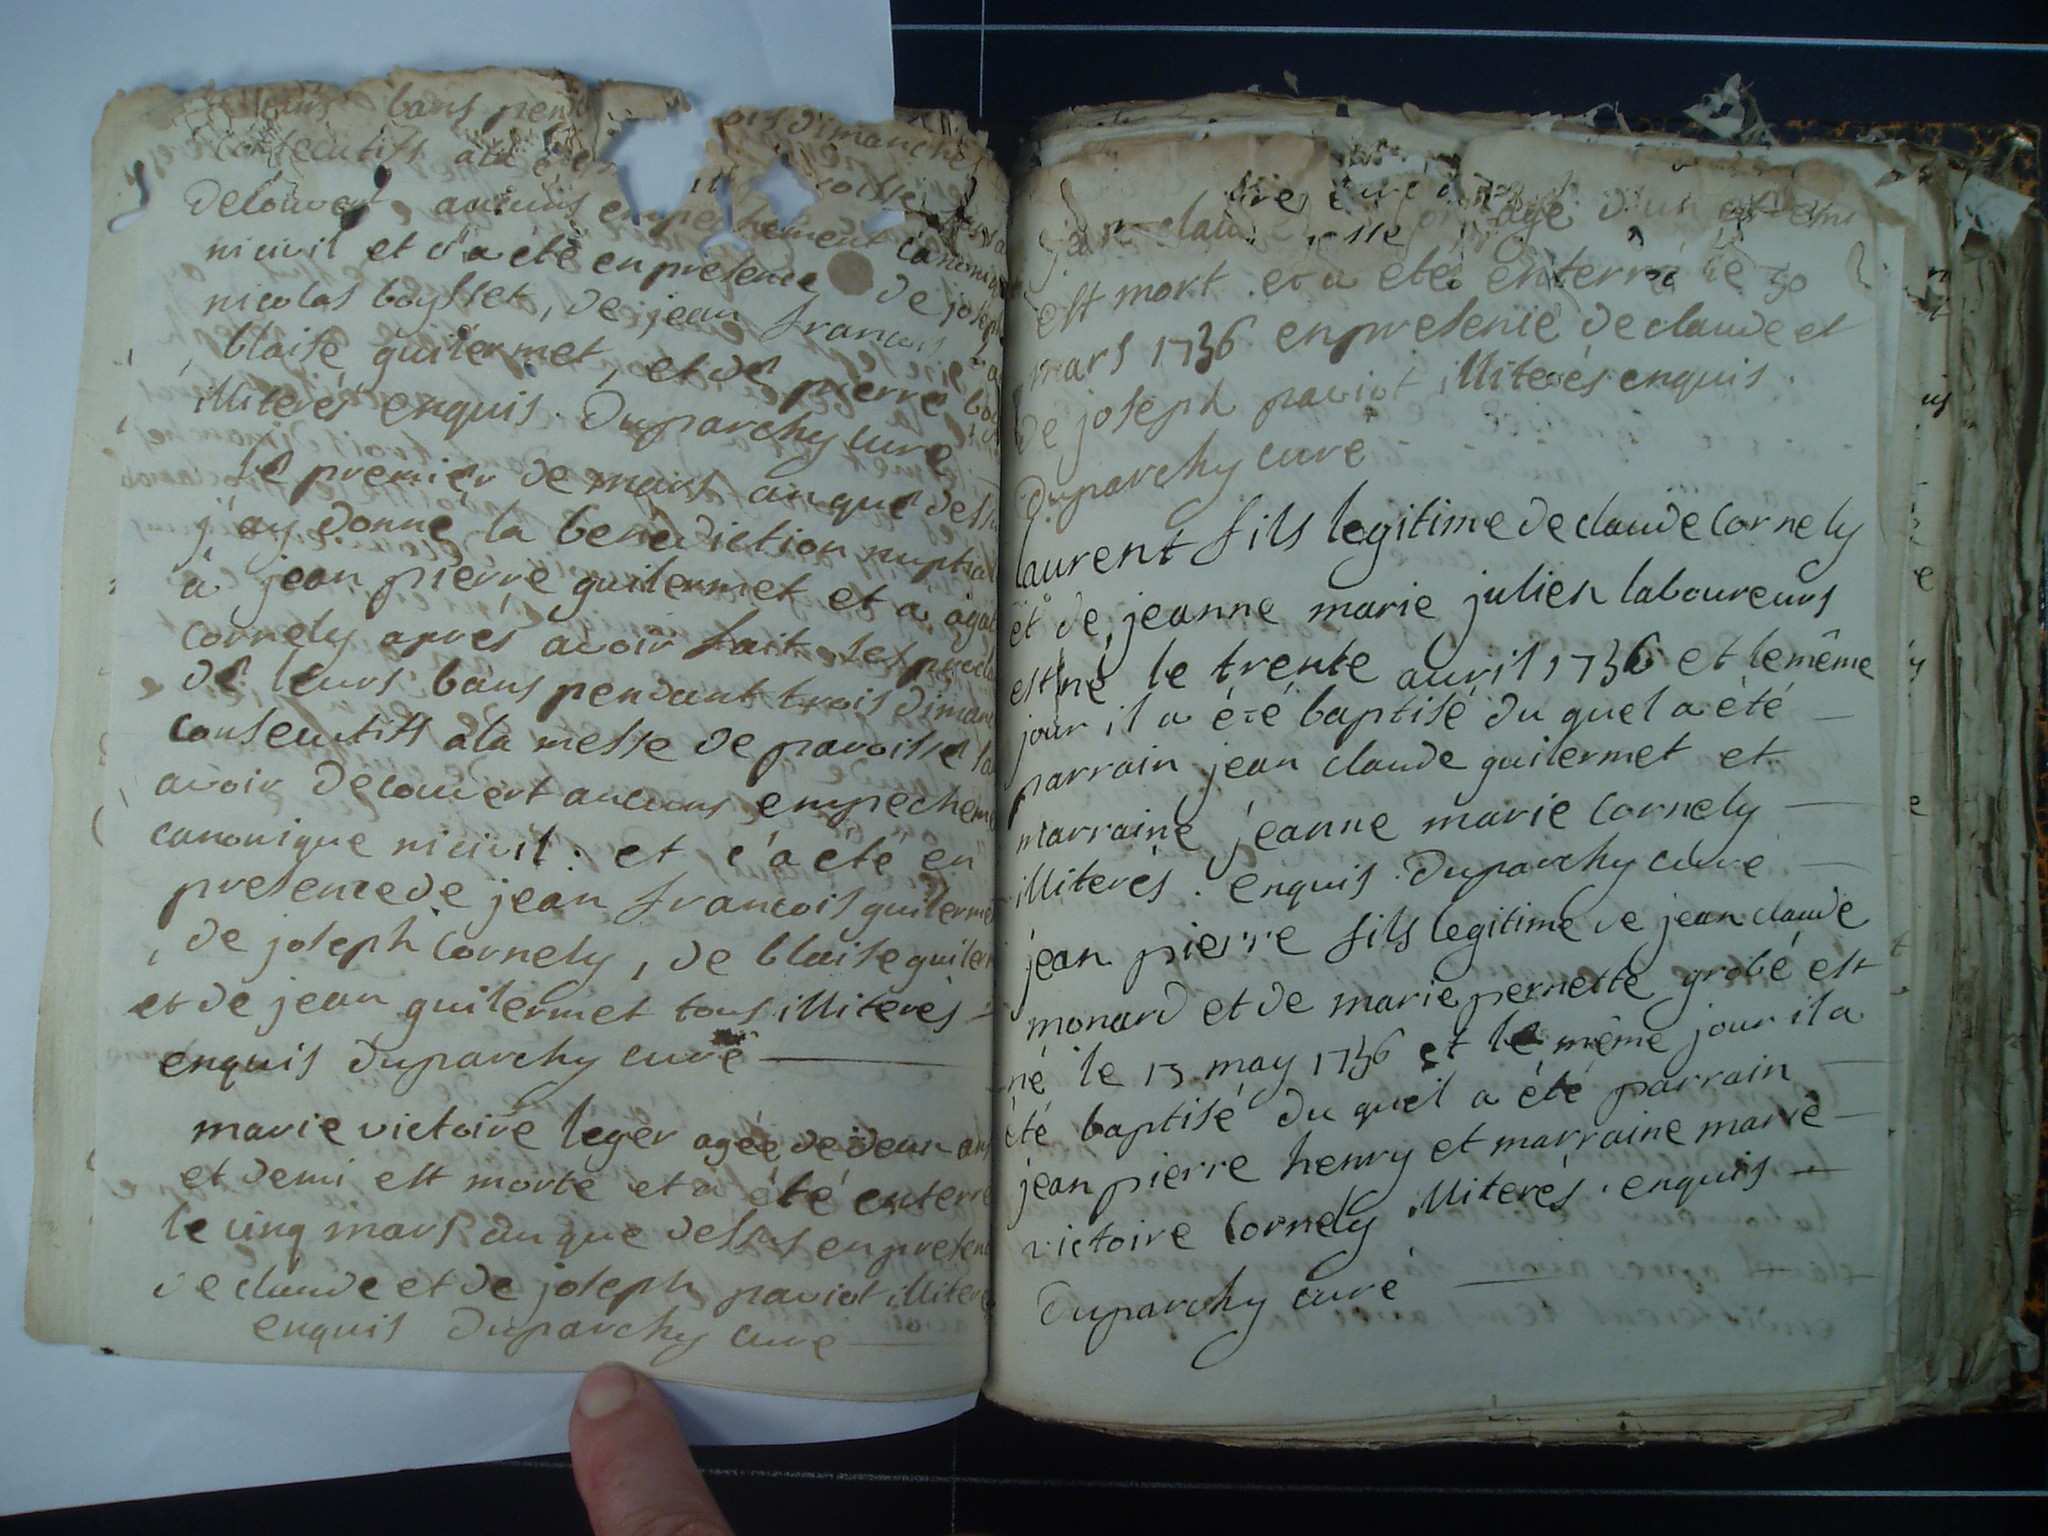 leurs bans pend ois dimanche
consecutifs a la
decouvert aucuns empechement canoniq
ni civil et c'a été en presence de joseph
nicolas boysset, de jean francois
blaise guilermet, et de pierre
illiterés enquis. Duparchy curé
Le premier de mars an que dessu
j'ay donné la benediction nuptial
à jean pierre guilermet et a agat
Cornely aprés avoir fait les procla
de leurs bans pendant trois diman
consecutifs a la messe de paroisse
avoir decouvert aucuns empecheme
canonique ni civil. et c'a été en
presence de jean francois guilermet
, de joseph Cornely, de blaise guiler
et de jean guilermet tous illiterés
enquis Duparchy curé
marie victoire leger agée de deux ans
et demi est morte et a été enterré
le cinq mars an que dessus en presen
de claude et de joseph paviot illiteré
enquis Duparchy curé
jean claude agé d'un
est mort et a été enterré le 30
mars 1736 en presence de claude et
de joseph paviot illiterés enquis.
Duparchy curé
laurent fils legitime de claude Cornely
et de jeanne marie julien laboureurs
est né le trente avril 1736 et le même
jour il a été baptisé du quel a été
parrain jean claude guilermet et
marraine jeanne marie Cornely
illiterés. enquis. Duparchy curé
jean pierre fils legitime de jean claude
monard et de marie pernette grobé est
né le 13 may 1736 et le même jour il a
été baptisé du quel a été parrain
jean pierre henry et marraine marie
victoire Cornely illiterés. enquis
Duparchy curé